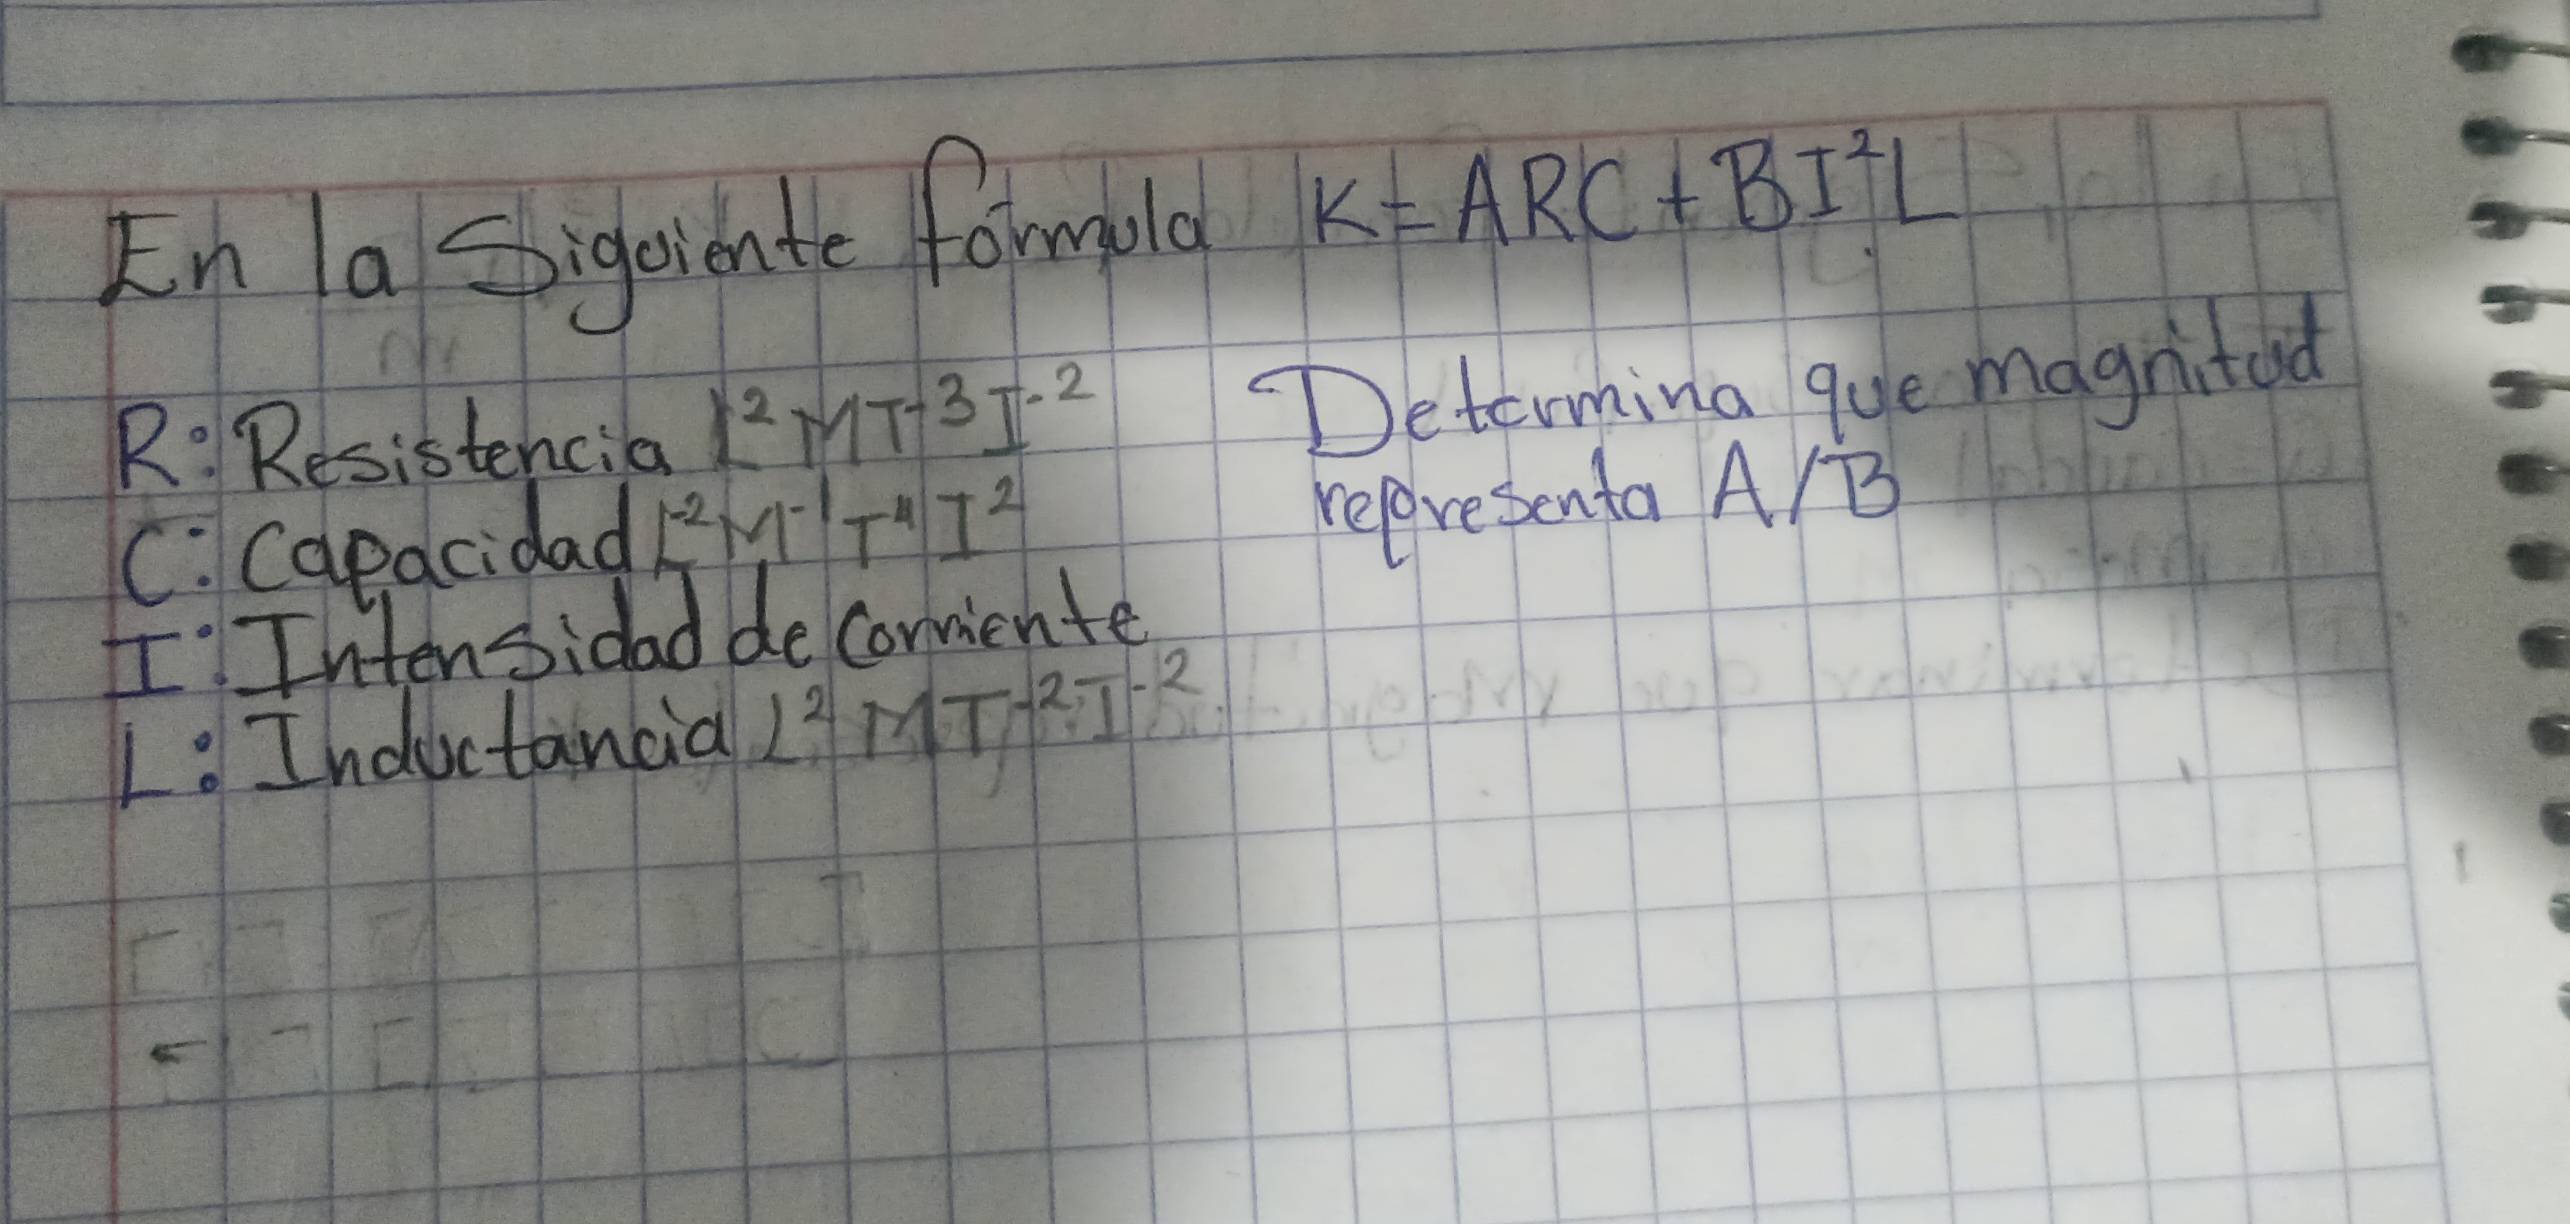 En la Siguiente fórmula K=ARC+BI²L
R: Resistencia L²MT⁻³I⁻²
C: Capacidad L⁻²M⁻¹T⁴I²
I: Intensidad de Corriente
L: Inductancia L²MT⁻²I⁻²
Determina que magnitud
representa A/B